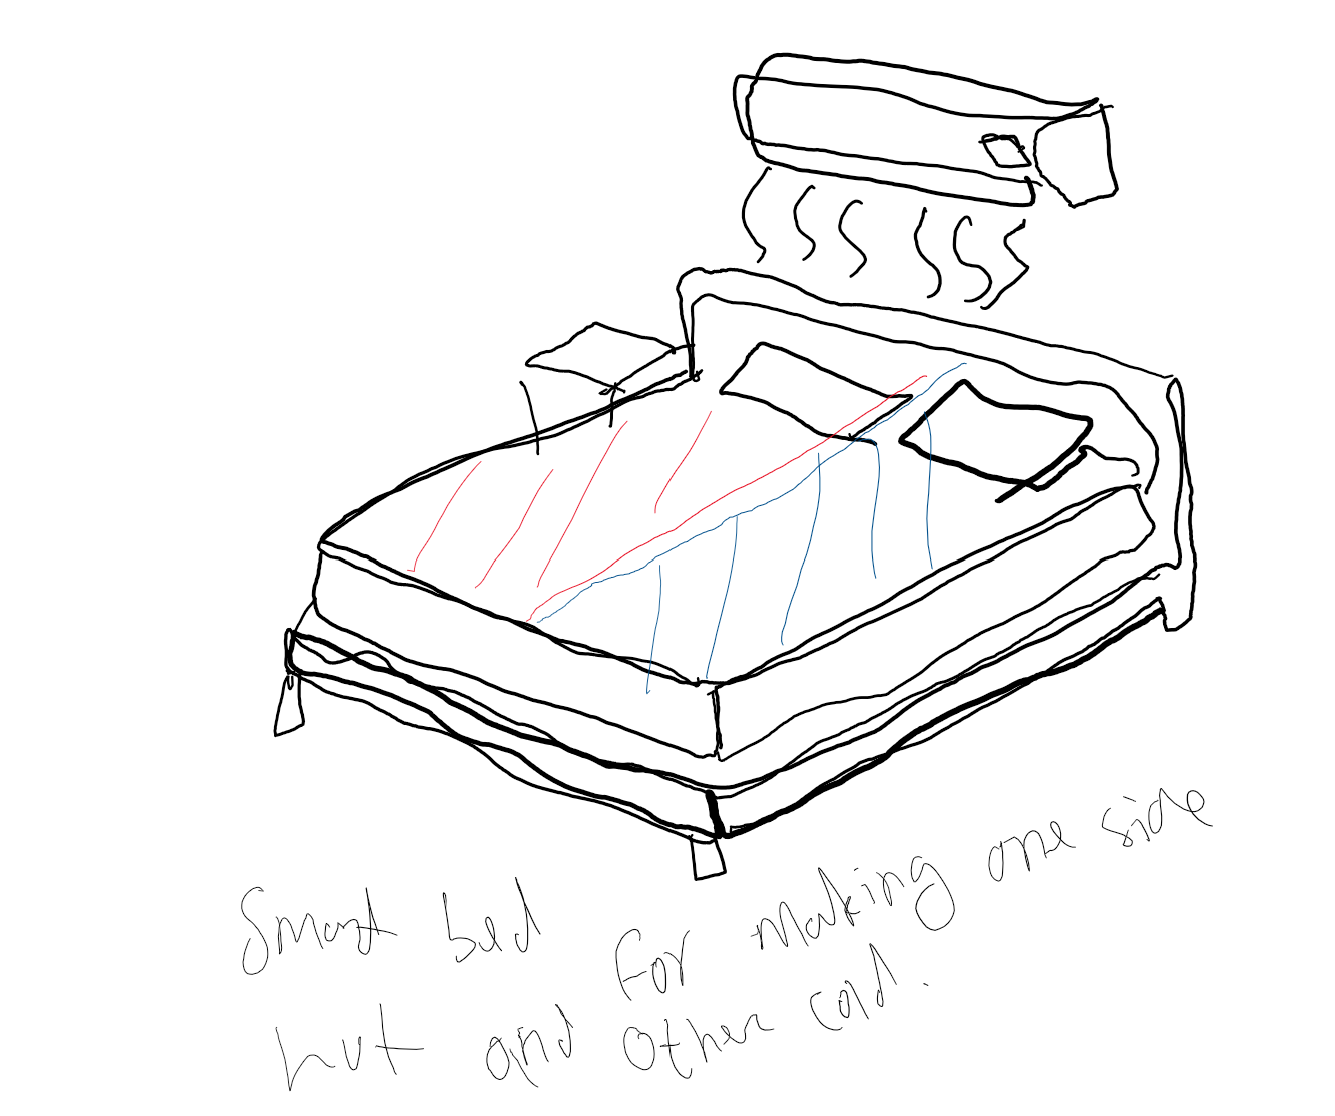 Smart bed for making one side
hot and other cold.